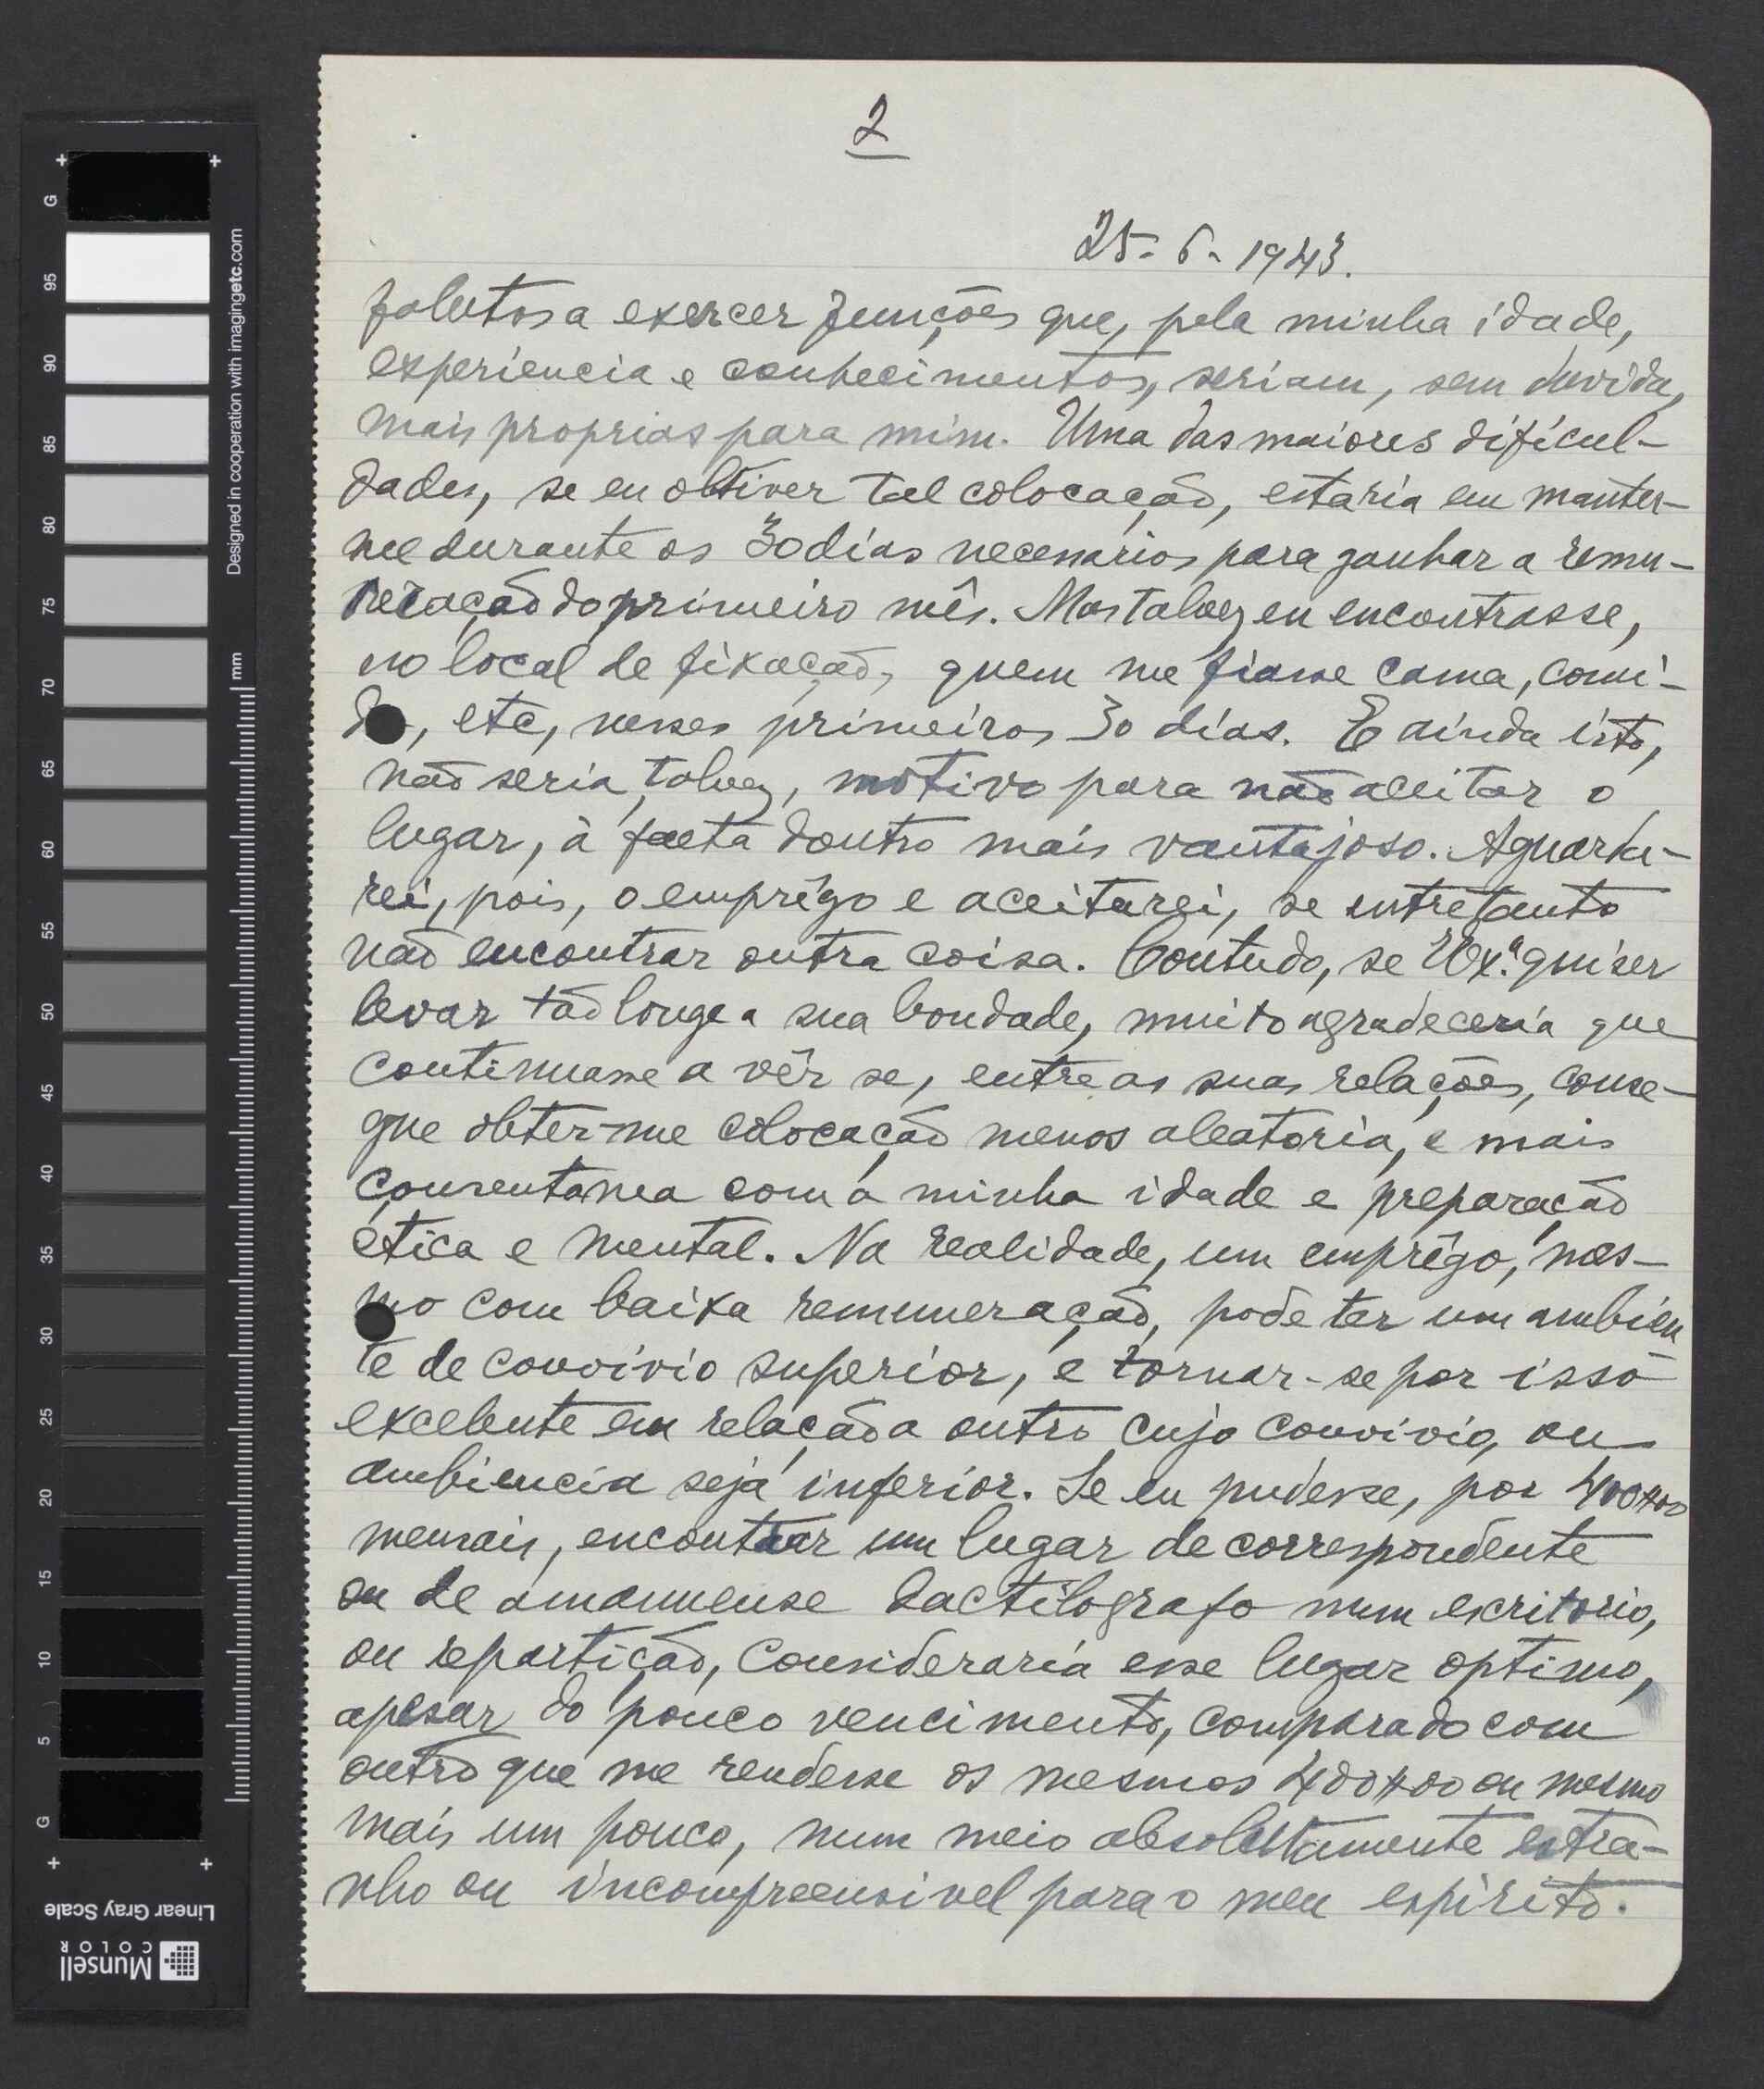 2
25-6-1943.
a exercer funções que, pela minha idade,
experiencia e conhecimentos, seriam, sem duvida,
mais proprias para mim. Uma das maiores dificul-
dades, se eu obtiver tal colocação, estaria em manter-
me durante os 30 dias necessarios para ganhar a remu-
neração do primeiro mês. Mas talvez eu encontrasse,
no local de fixação, quem me fiasse cama, comi-
da, etc, nesses primeiros 30 dias. E ainda isto,
não seria, talvez, motivo para não aceitar o
lugar, à falta doutro mais vantajoso. Aguarda-
rei, pois, o emprêgo e aceitarei, se entretanto
não encontrar outra coisa. Contudo, se V.Ex.ª quiser
levar tão longe a sua bondade, muito agradeceria que
continuasse a vêr se, entre as suas relações, conse-
gue obter-me colocação menos aleatoria, e mais
consentanea com a minha idade e preparação
etica e mental. Na realidade, um emprêgo, mes-
mo com baixa remuneração, pode ter um ambien
te de convivio superior, e tornar-se por isso
excelente em relação a outro cujo convivio, ou
ambiencia seja inferior. Se eu pudesse, por 400$00
mensais, encontrar um lugar de correspondente
ou de amanuense dactilografo num escritorio,
ou repartição, consideraria esse lugar optimo,
apesar do pouco vencimento, comparado com
outro que me rendesse os mesmos 400$00 ou mesmo
mais um pouco, num meio absolutamente estra-
nho ou incompreensivel para o meu espirito.
Designed in cooperation with imagingetc.com
mm
G
95
90
85
80
75
70
65
60
55
50
45
40
35
30
25
20
15
10
5
G
Linear Gray Scale
Munsell
COLOR